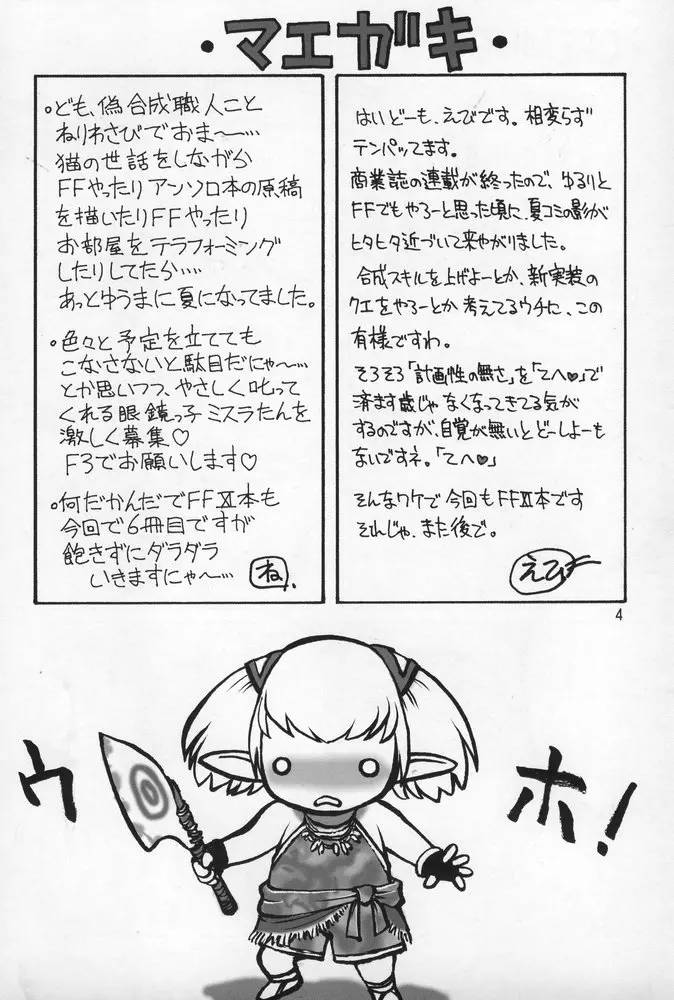 ・マエガキ・
はいどーも、えびです。相変らず
テンパッてます。
商業誌の連載が終ったので、ゆるりと
FFでもやろーと思った頃に、夏コミの影が
ヒタヒタ近づいて来やがりました。
合成スキルを上げよーとか、新実装の
クエをやろーとか考えてるウチに、この
有様ですわ。
そろそろ「計画性の無さ」を「てへ♥」で
済ます歳じゃなくなってきてる気が
するのですが、自覚が無いとどーしよーも
ないですネ。「てへ♥」
そんなワケで今回もFFⅪ本です
それじゃ、また後で。
えび
。ども、偽合成職人こと
ねりわさびでおま〜…
猫の世話をしながら
FFやったりアンソロ本の原稿
を描いたりFFやったり
お部屋をテラフォーミング
したりしてたら‥‥
あっとゆうまに夏になってました。
・色々と予定を立てても
こなさないと駄目だにゃ〜…
とか思いつつ、やさしく叱って
くれる眼鏡っ子ミスラたんを
激しく募集♡
F3でお願いします♡
。何だかんだでFFⅪ本も
今回で6冊目ですが
飽きずにダラダラ
いきますにゃ〜…
ね、
4
ウホ!